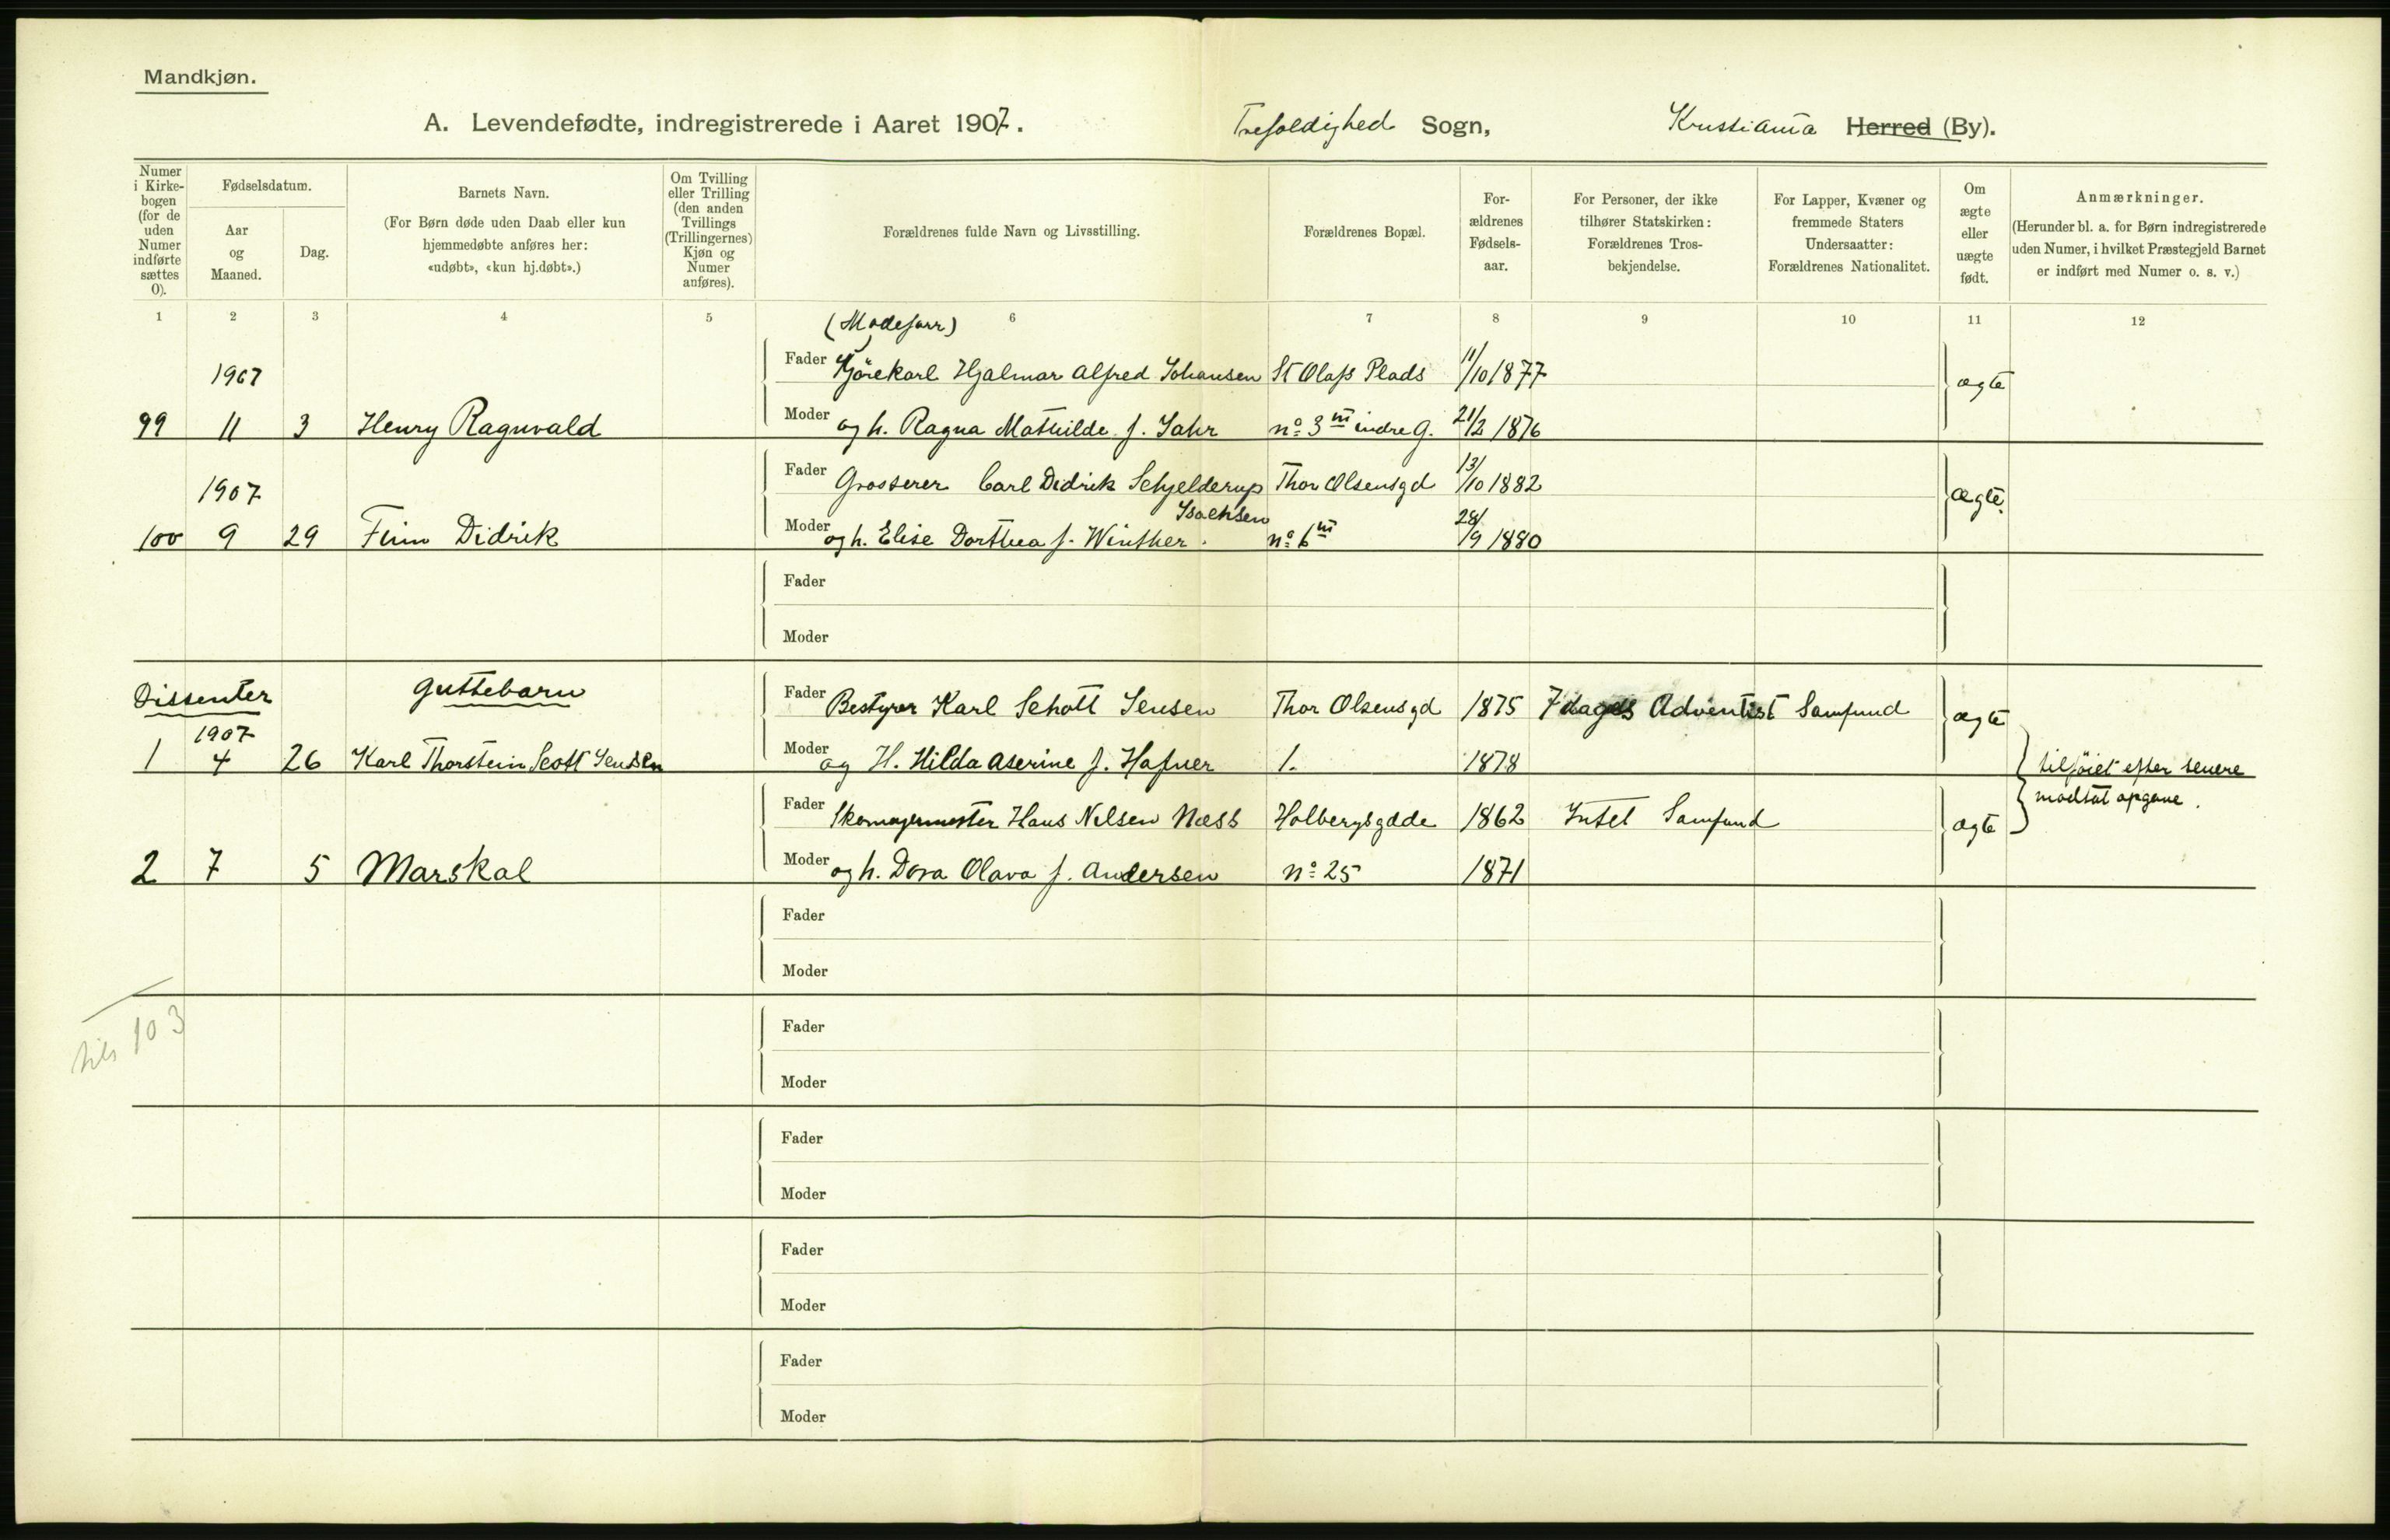 Mandkjøn.
A. Levendefødte, indregistrerede i Aaret 1907.
Trefoldighed Sogn, Kristiania Herred (By).
Numer i Kirkebogen (for de uden Numer indførte sættes 0).
Fødselsdatum.
Aar og Maaned.
Dag.
Barnets Navn.
(For Børn døde uden Daab eller kun
hjemmedøbte anføres her:
«udøbt», «kun hj.døbt».)
Om Tvilling
eller Trilling
(den anden
Tvillings
(Trillingernes)
Kjøn og
Numer
anføres).
Forældrenes fulde Navn og Livsstilling.
Forældrenes Bopæl.
For-
ældrenes
Fødsels-
aar.
For Personer, der ikke
tilhører Statskirken:
Forældrenes Tros-
bekjendelse.
For Lapper, Kvæner og
fremmede Staters
Undersaatter:
Forældrenes Nationalitet.
Om
ægte
eller
uægte
født.
Anmærkninger.
(Herunder bl. a. for Børn indregistrerede
uden Numer, i hvilket Præstegjeld Barnet
er indført med Numer o. s. v.)
1 2 3 4 5 6 7 8 9 10 11 12
1907 Fader Kjörekarl Hjalmar Alfred Johansen St Olafs Plads 11/10 1877 ægte
99 11 3 Henry Ragnvald Moder og h. Ragna Mathilde f. Jahr no 3 III indre G. 21/2 1876
1907 Fader Grosserer Carl Didrik Schjelderup Thor Olsensgd 13/10 1882 ægte
Isachsen
100 9 29 Finn Didrik Moder og h. Elise Dorthea f. Winther. no 6 III 28/9 1880
Fader
Moder
Dissenter Guttebarn Fader Bestyrer Karl Schott Jensen Thor Olsensgd 1875 7 dages Adventist Samfund ægte
1907
1 4 26 Karl Thorstein Scott Jensen Moder og H. Hilda Aserine f. Hafner 1. 1878 tilföiet efter senere
Fader Skomagermester Hans Nilsen Næss Holbergsgade 1862 Intet Samfund ægte modtat opgave.
2 7 5 Marskal Moder og h. Dora Olava f. Andersen no 25 1871
Fader
Moder
tils 103
Fader
Moder
Fader
Moder
Fader
Moder
Fader
Moder